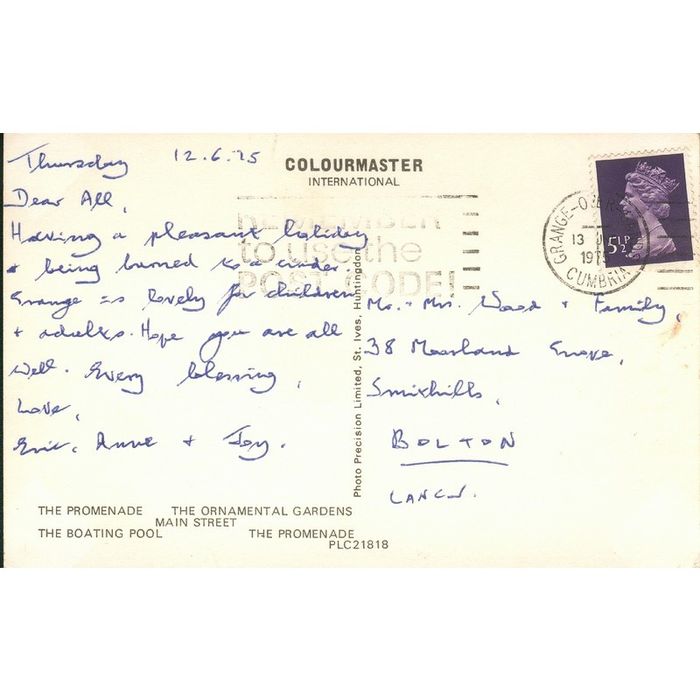 Thursday 12.6.75
Dear All,
Having a pleasant holiday
+ being burned to a cinder.
Grange is lovely for children
+ adults. Hope you are all
well. Every blessing,
Love,
Eric, Anne + Joy.
COLOURMASTER
INTERNATIONAL
REMEMBER
to use the
POST CODE!
GRANGE-OVER-
13
1975
CUMBRIA
5½P
Mr. + Mrs. Wood + Family,
38 Moorland Grove,
Smithills,
BOLTON
LANCS.
Photo Precision Limited, St. Ives, Huntingdon
THE PROMENADE THE ORNAMENTAL GARDENS
MAIN STREET
THE BOATING POOL THE PROMENADE
PLC21818